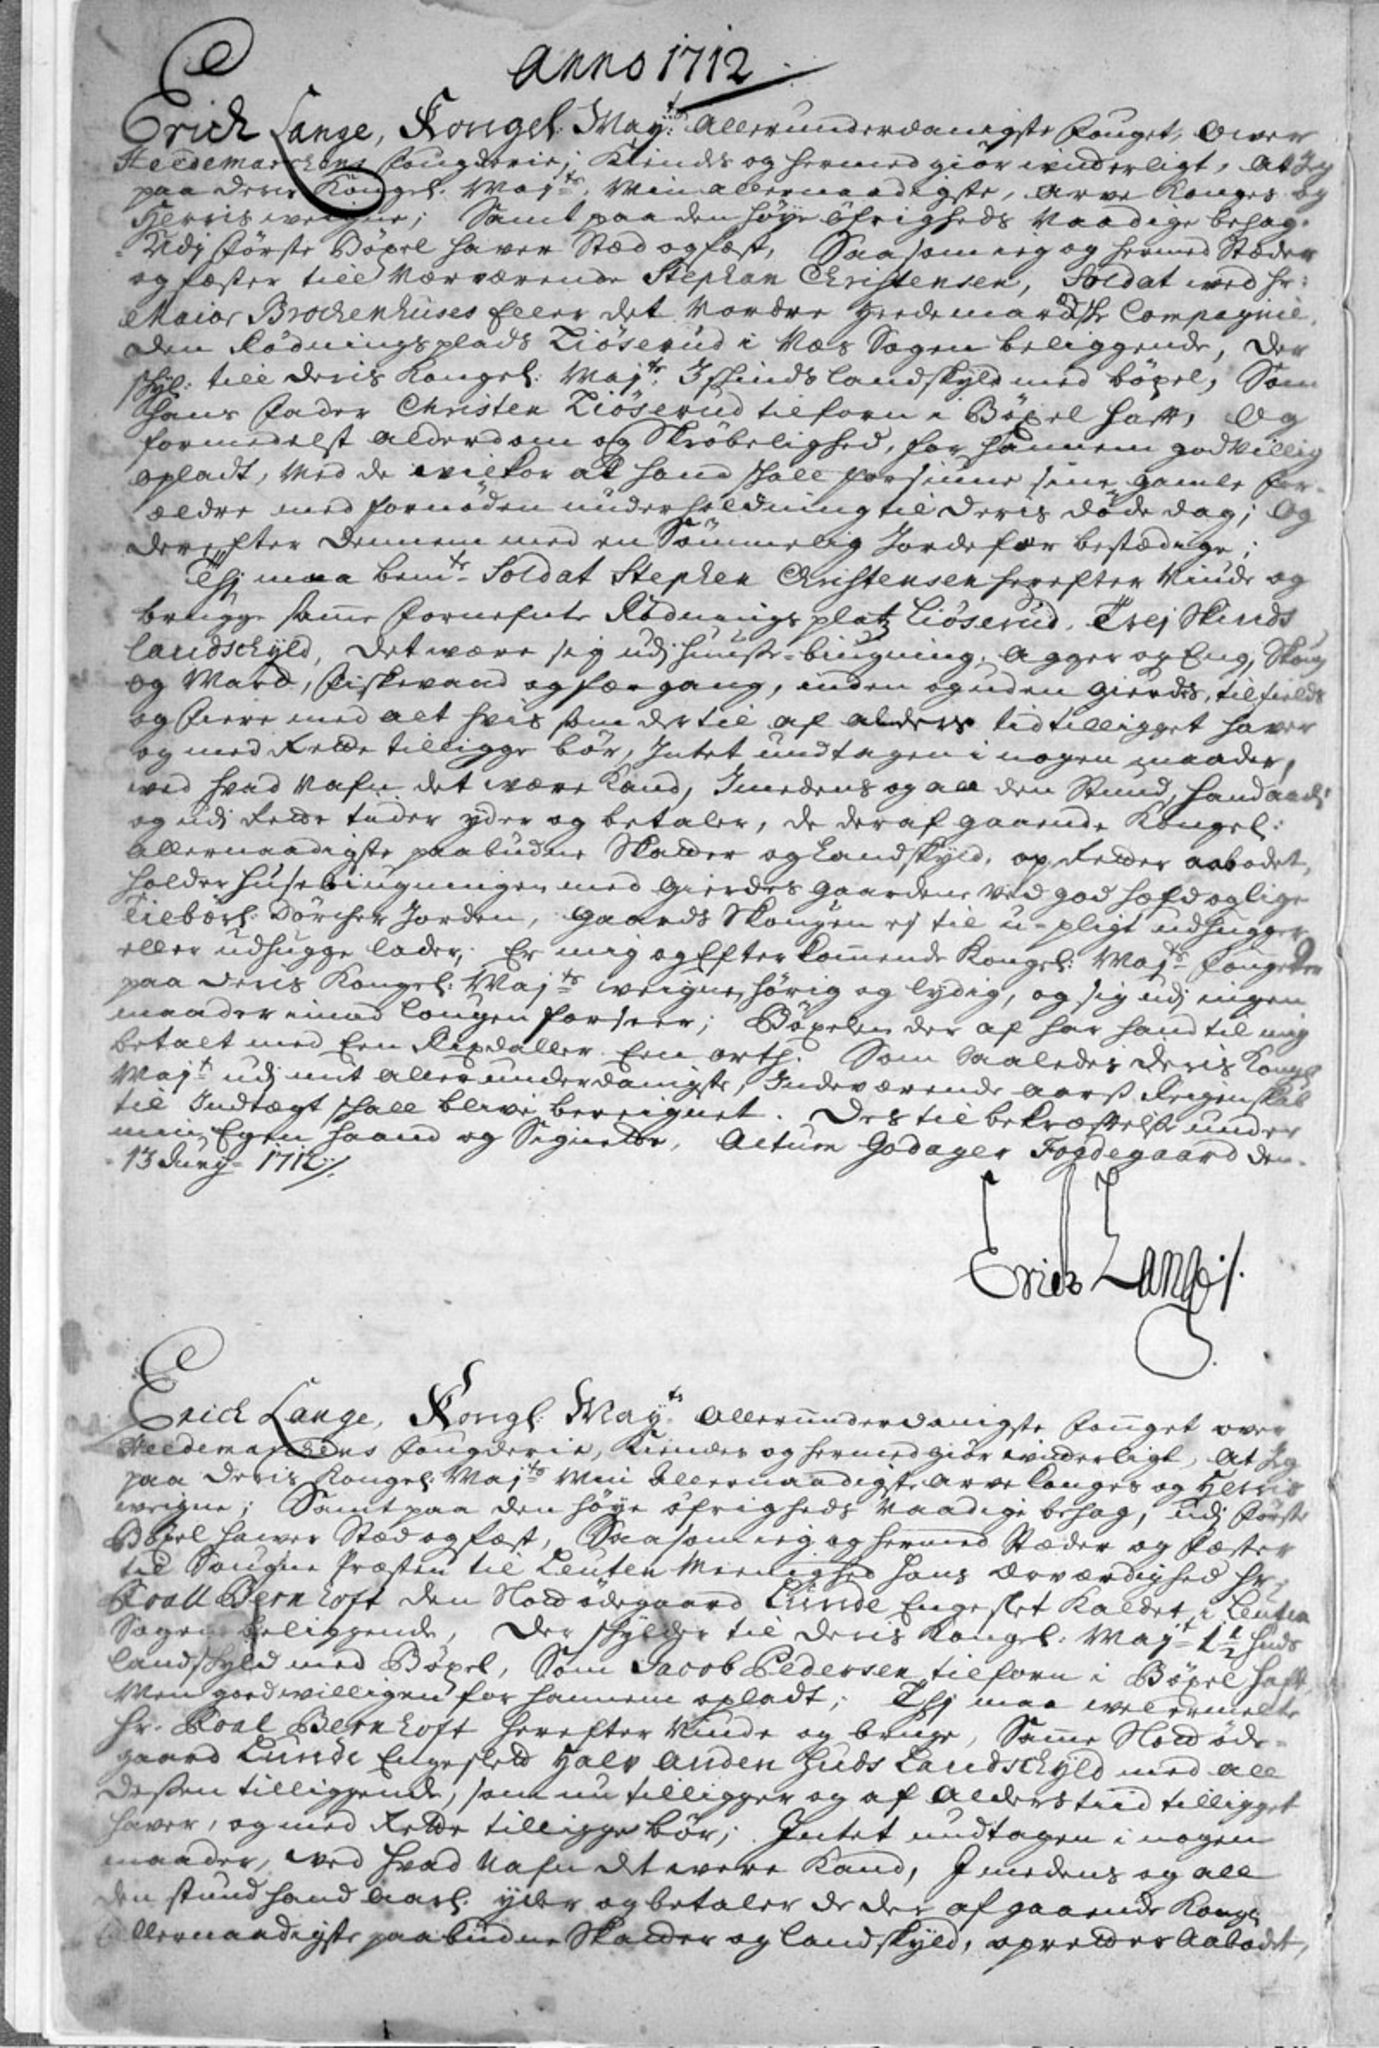 Anno 1712
Erich Lange, Kongel: May:ts Allerunderdanigste Fouget, Over
Heedemarchens Fougderie; Kiendes og hermed giör vinderligt, At Jeg
paa Deris Kongel: Maj:ts, Min allernaadigste, Arve Konges og
Herris weigne; Samt paa den høye Öfrigheds Naadige behag
Udj Förste Böxel haver Stæd og fæst, Saasom ieg og hermed Stæder
og fæster till Nærværende Stephan Christensen, Soldat ved Hr:
Maior Brochenhuses Eller det Nordre Heedemarchske Compagnie,
den Rödningsplads Liöserud i Næs Sogen beliggende, Der
skyl: till Deris Kongel: Maj:ts 3 skinds landskyld med böxel, Som
Hans Fader Christen Liöserud tilforn i Böxel hafft, Og
formedelst Alderdom og Skröbelighed, for hannem godvillig
opladt, Med de vilkor at hand skall forsiune sine gamle For-
ældre med fornöden underholdning til Deris döde dag; Og
der efter dennem med en Sömmelig Jordefær bestædige;
Thj maa bem:te Soldat Stephen Christensen herefter Niude og
brugge samme fornefnte Rödnings platz Liöserud, Trej Skinds
landschyld, Det være sig udj huuse-biugning, Agger og Eng, Skoug
og March, Fiskevand og fæe gang, inden og uden gierdes, til fields
og fiere med alt hvis som der til af alders tid tilligget haver
og med Rette tilligge bör, Intet undtagen i nogen maader,
ved hvad Nafn det være kand, Imedens og all den Stund, hand
og udj Rette tider yder og betaler, de deraf gaaende Kongel:
allernaadigste paabudne Skatter og Landskyld, op Retter aabodet,
holder husebiugningen med gierdes gaardene ved god hæfd og lige
tilbörl: Dörcher Jorden, gaards Skougen ej til u-pligt udhugger
eller udhugge lader, Er mig og Efterkommende Kongel: Maj:ts Fougder
paa Deris Kongel: Maj:ts weigne, hörig og lydig, og sig udj ingen
maader imod Lougen forseer; Böxelen der af har hand til mig
betalt med Een Rixdaller Een orth. Som saaledes Deris Kongl
Maj:t udj mit allerunderdanigste, Indeværende aars Reigenskab
til Indtægt skall blive bereignet. Des til bekræftelse under
min Egen haand og Signette, Actum Godager Fogdegaard den
13 Junj 1712/.
Erich Lange/.
Erich Lange, Kongl: May:ts Allerunderdanigste Fouget over
Heedemarchens Fougderie, Kiendes og hermed giör vinderligt, At Jeg
paa Deris Kongel: Maj:ts Min Allernaadigste Arve Konges og Herris
weigne; Samt paa den høye öfrigheds Naadige behag, udj Förste
Böxel haver Stæd og fæst, Saasom ieg og hermed Stæder og Fæster
til Sougne Præsten til Leuten Meenighed Hans Ærværdighed Hr:
Poall Bernhoft den Ødegaard Lunde Engeslet Kaldet, i Leuten
Sogen beliggende, Der skylder til Deris Kongel: Maj:t 1½ huds
landskyld med Böxel, Som Jacob Pedersen tilforn i Böxel hafft,
Men goedwilligen for hannem opladt; Thj maa welermelte
Hr. Poal Bernhoft herefter Niude og bruge, Samme öde-
gaard Lunde Engeslett Halv Anden huds Landschyld med all
dessen tilliggende, som nu tilligger og af Alders tiid tilligget
haver, og med Rette tilligge bör; Intet undtagen i nogen
maader, ved hvad Nafn det were kand, Imedens og all
den stund hand aarl: yder og betaler de der af gaaende Kongl
Allernaadigste paabudne Skatter og landskyld, opretter Aabodet,